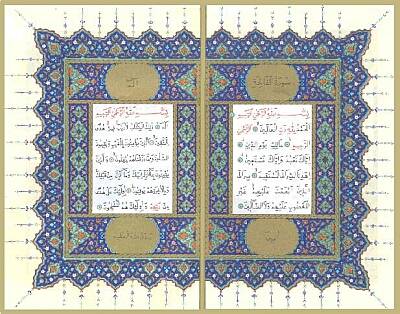 سورة الفاتحة
بسم الله الرحمن الرحيم
الحمد لله رب العالمين الرحمن
الرحيم مالك يوم الدين
إياك نعبد وإياك نستعين
اهدنا الصراط المستقيم صراط
الذين أنعمت عليهم غير
المغضوب عليهم ولا الضالين
بسم الله الرحمن الرحيم
الم ذلك الكتاب لا ريب فيه هدى
للمتقين الذين يؤمنون بالغيب ويقيمون
الصلوة ومما رزقناهم ينفقون والذين
يؤمنون بما أنزل إليك وما أنزل من قبلك
وبالآخرة هم يوقنون أولئك على هدى
من ربهم وأولئك هم المفلحون